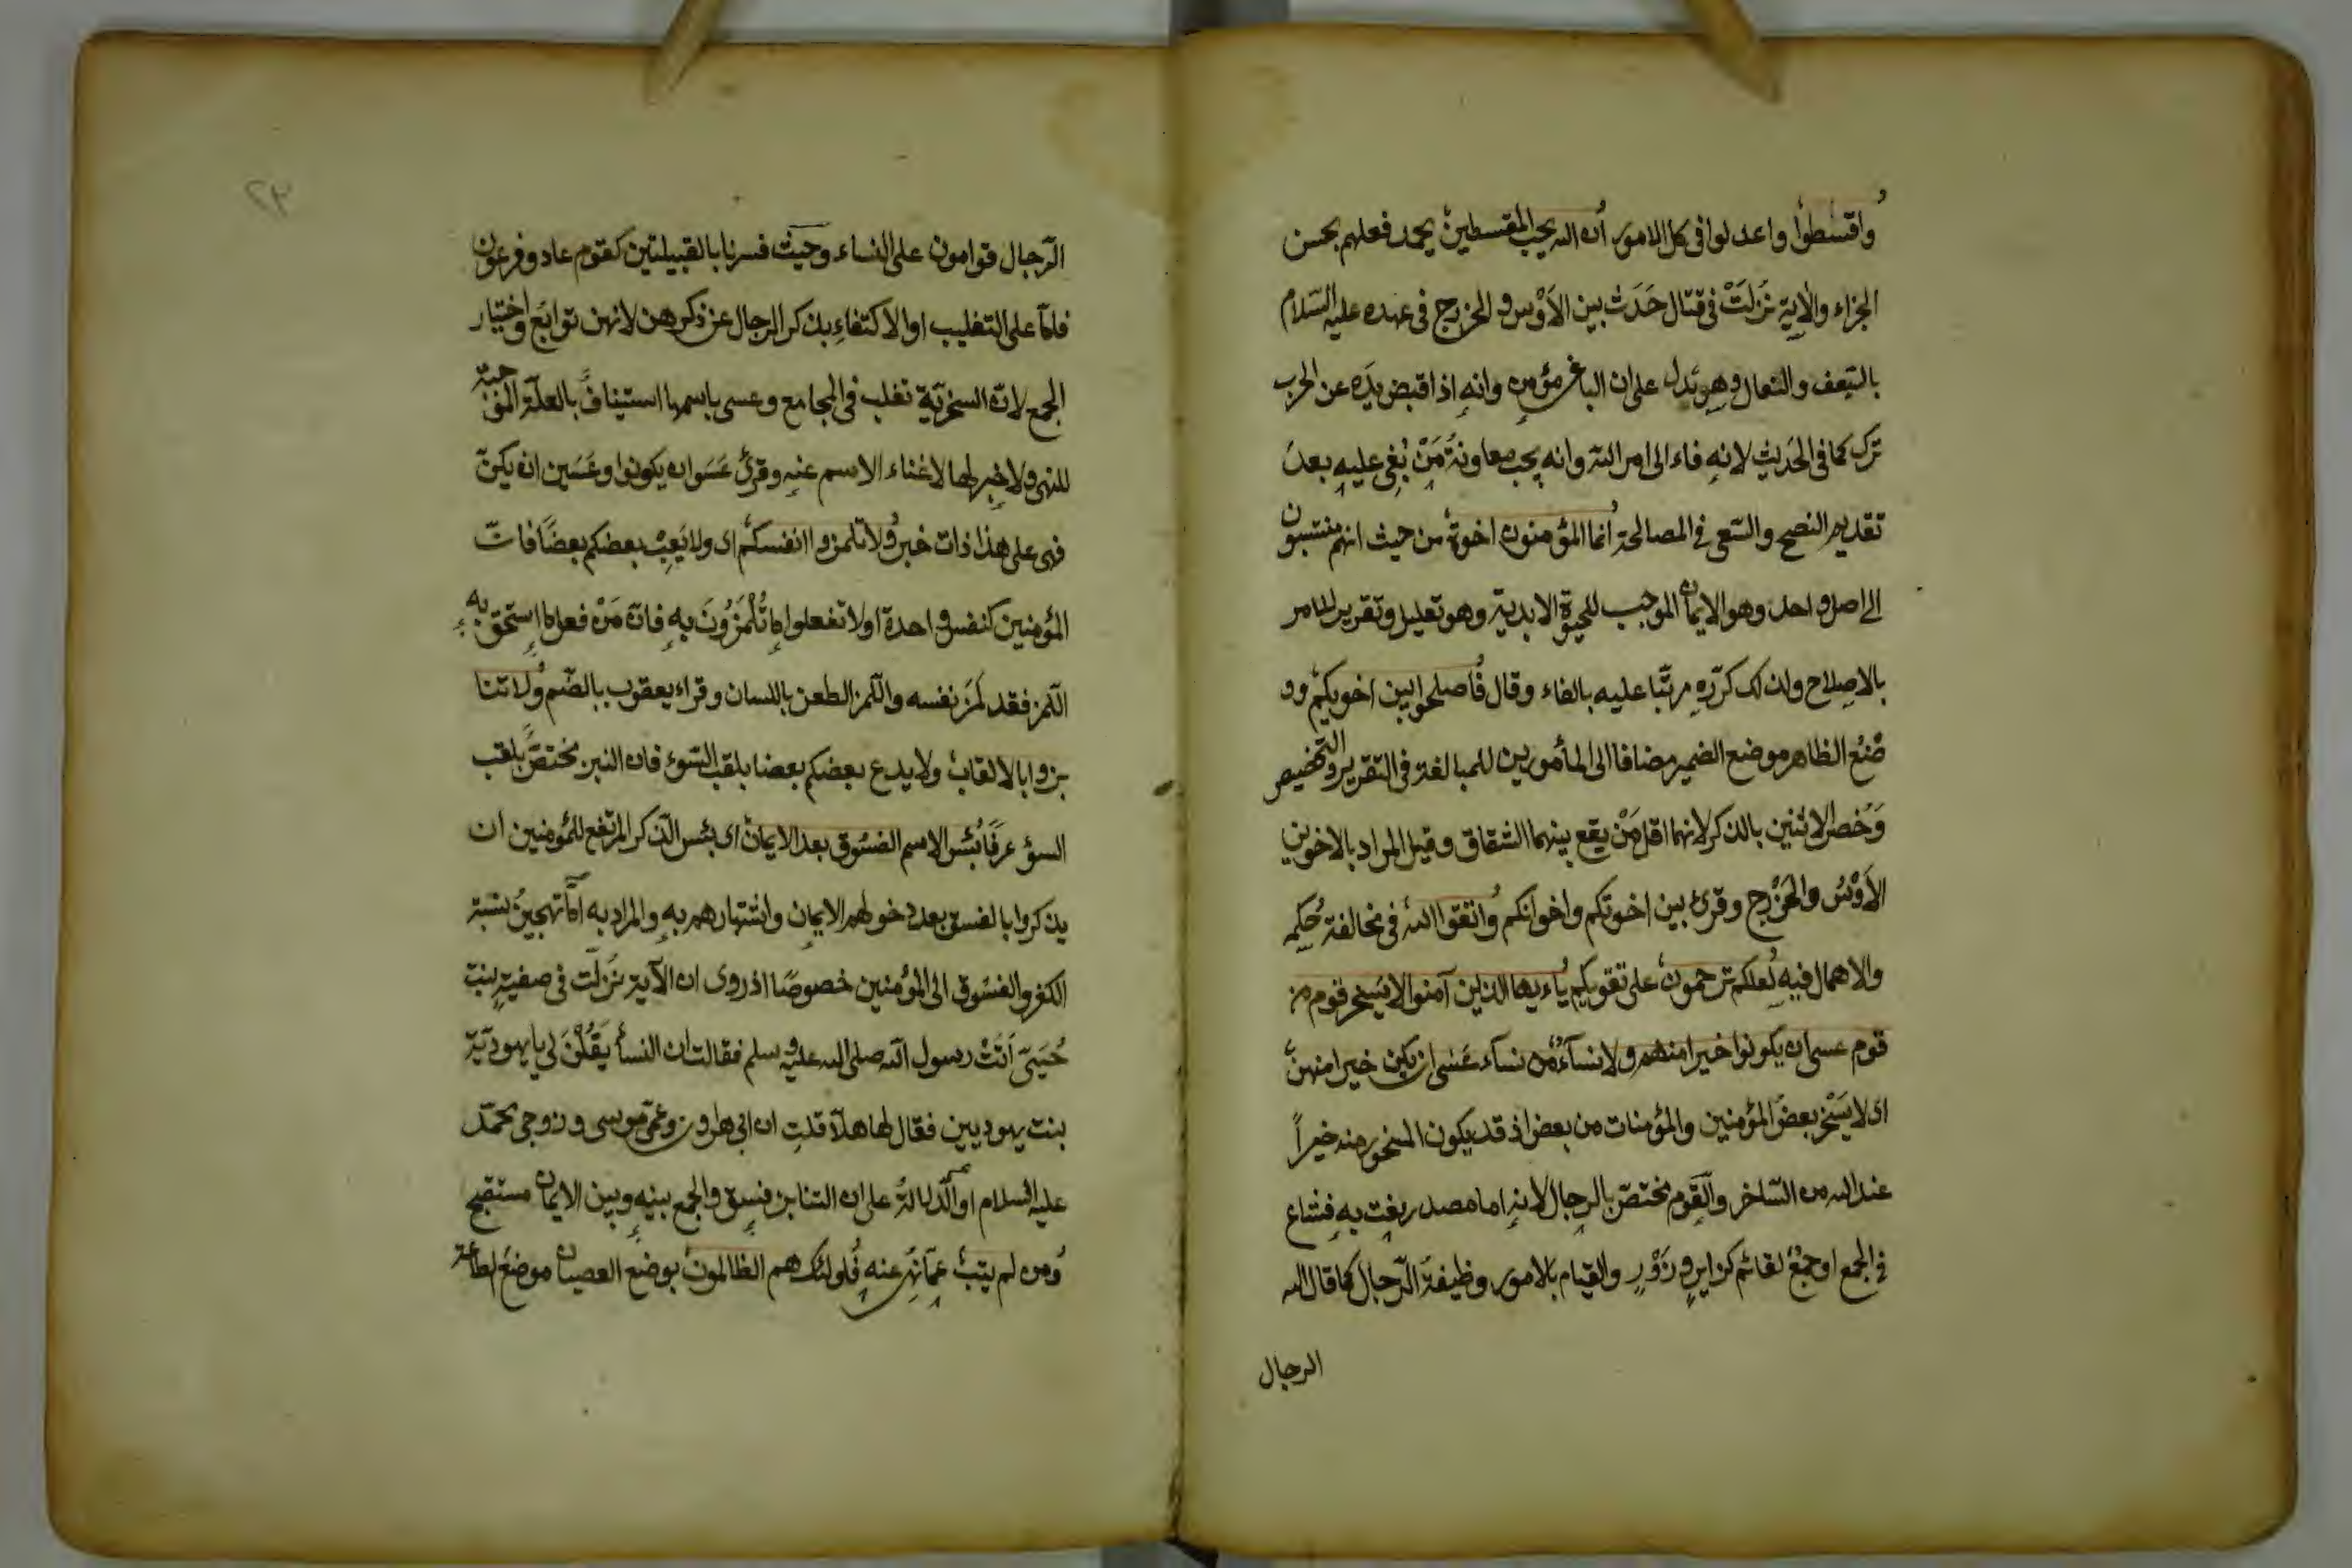 واقسطوا واعدلوا فى كل الامور ان الله يحب المقسطين يحمد فعلهم بحسن
الجزاء والاية نَزَلَتْ فى قتال حَدَثَ بين الاَوْس والخزرج فى عهده عليه السّلام
بالسّعف والنعال وهو تدل على ان الباغى مؤمن وانه اذا قبض يَدَه عن الحرب
ترك كما فى الحَديث لانه فاء الى امر الله وانه يجب معاونةُ مَنْ بُغِى عليه بعد
تقديم النصح والسّعى فى المصالحة انما المؤمنون اخوة من حيث انهم منتسبون
الى اصل واحد وهو الايمان الموجب للحيوة الابدية وهو تعليل وتقرير للامر
بالاصلاح ولذلك كرّره مرتّبا عليه بالفاء وقال فأصلحوا بين اخويكم وو
ضْعُ الظاهر موضع الضمير مضافا الى المأمورين للمبالغة فى التقرير والتخصيص
وَخُصّ الاثنين بالذكر لانهما اقل مَنْ يقع بينهما الشقاق وقيل المراد بالاخوين
الاَوْسُ والخَزْرج وقرئ بين اخوتكم واخوانكم واتقوا الله فى مخالفة حُكمه
والاهمال فيه لعلكم ترحمون على تقويكم ياءيها الذين آمنوا لا يسخر قوم من
قوم عسى ان يكونوا خيرا منهم ولا نسآءٌ من نسآء عَسَى ان يكن خيرا منهنّ
اى لا يَسْخر بعضُ المؤمنين والمؤمنات من بعض اذ قد يكون المسخور منه خيراً
عند الله من السّاخر والقَوم مختصّ بالرجال لانه اما مصدر نعت به فشاع
فى الجمع او جمعٌ لقائم كزاير وزَوْرٍ والقيام بالامور وظيفةُ الرّجال كما قال الله
الرجال
٢٣
الرّجال قوامون على النساء وحيث فسرنا بالقبيلتين كقوم عاد وفرعون
فامّا على التغليب او الاكتفاءِ بذكر الرجال عن ذكرهن لانهن توابَع واختيار
الجمع لانّ السخريّة تغلب فى المجامع وعسى باسمها استينافٌ بالعلّة الموجبة
للنهى ولا خبر لها لاغناء الاسم عنه وقرئ عَسَوا ان يكونوا وعَسَين ان يكنّ
فهى على هذا ذات خبر ولا تلمزوا انفسكم اى ولا يَعِبْ بعضكم بعضًا فانّ
المؤمنين كنفس واحدة او لا تفعلوا ما تُلْمَزُونَ به فانّ مَنْ فعل ما استحق به
اللّمز فقد لمَزَ نفسه واللّمز الطعن باللسان وقراء يعقوب بالضّم ولا تنا
بزوا بالالقاب ولا يدع بعضكم بعضا بلقب السّوء فان النبز مختصّ بلقب
السوء عرفًا بئس الاسم الفسُوق بعد الايمان اى بئس الذّكر المرتفع للمؤمنين ان
يذكروا بالفسق بعد دخولهم الايمان واشتهارهم به والمراد به امّا تهجينُ نسبة
الكفر والفسُوق الى المؤمنين خصوصًا اذ روى ان الآية نَزلَت فى صفية بنت
حُيَىّ اَتَتْ رسول الله صلى الله عليه وسلم فقالت ان النسأ يَقُلْنَ لى يا يهوديّة
بنت يهوديين فقال لها هلّا قلت ان ابى هارون وعمّى موسى وزوجى محمّد
عليه السلام او الدّلالةُ على ان التنابز فسق والجمع بينه وبين الايمان مستقبح
ومن لم يتب عمّا نُهى عنه فاولئك هم الظالمون بوضع العصيان موضعَ الطاعة